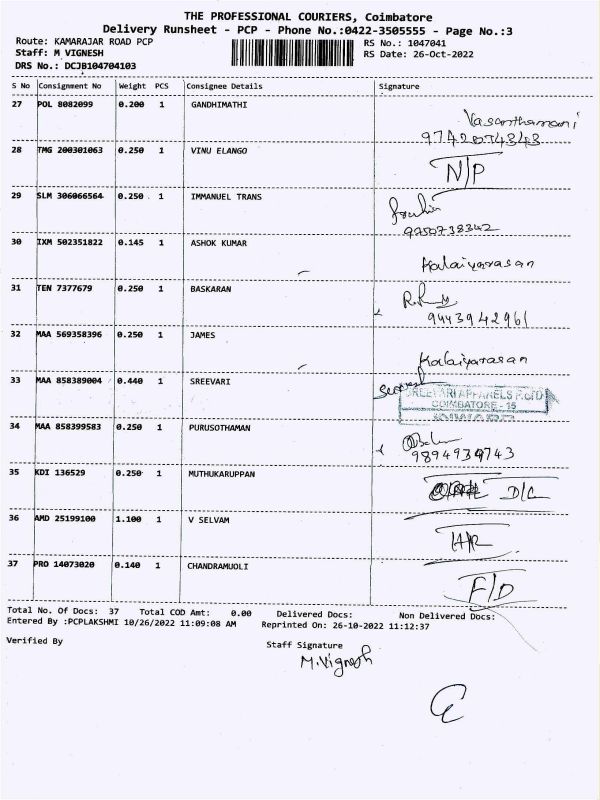 THE PROFESSIONAL COURIERS, Coimbatore
Delivery Runsheet - PCP - Phone No.:0422-3505555 - Page No.:3
Route: KAMARAJAR ROAD PCP
RS No.: 1047041
Staff: M VIGNESH
RS Date: 26-Oct-2022
DRS No.: DCJB104704103
S No Consignment No Weight PCS Consignee Details Signature
27 POL 8082099 0.200 1 GANDHIMATHI
Vasanthamani
9742074343
28 TMG 200301063 0.250 1 VINU ELANGO
N/P
29 SLM 306066564 0.250 1 IMMANUEL TRANS
9250738342
30 IXM 502351822 0.145 1 ASHOK KUMAR
Kalaiyarasan
31 TEN 7377679 0.250 1 BASKARAN
9443942961
32 MAA 569358396 0.250 1 JAMES
Kalaiyarasan
33 MAA 858389004 0.440 1 SREEVARI
SREEVARI APPARELS P. LTD
COIMBATORE - 15
34 MAA 858399583 0.250 1 PURUSOTHAMAN
9894939743
35 KDI 136529 0.250 1 MUTHUKARUPPAN
D/C
36 AMD 25199100 1.100 1 V SELVAM
37 PRO 14073020 0.140 1 CHANDRAMUOLI
F/D
Total No. Of Docs: 37 Total COD Amt: 0.00 Delivered Docs: Non Delivered Docs:
Entered By :PCPLAKSHMI 10/26/2022 11:09:08 AM Reprinted On: 26-10-2022 11:12:37
Verified By
Staff Signature
M.Vignesh